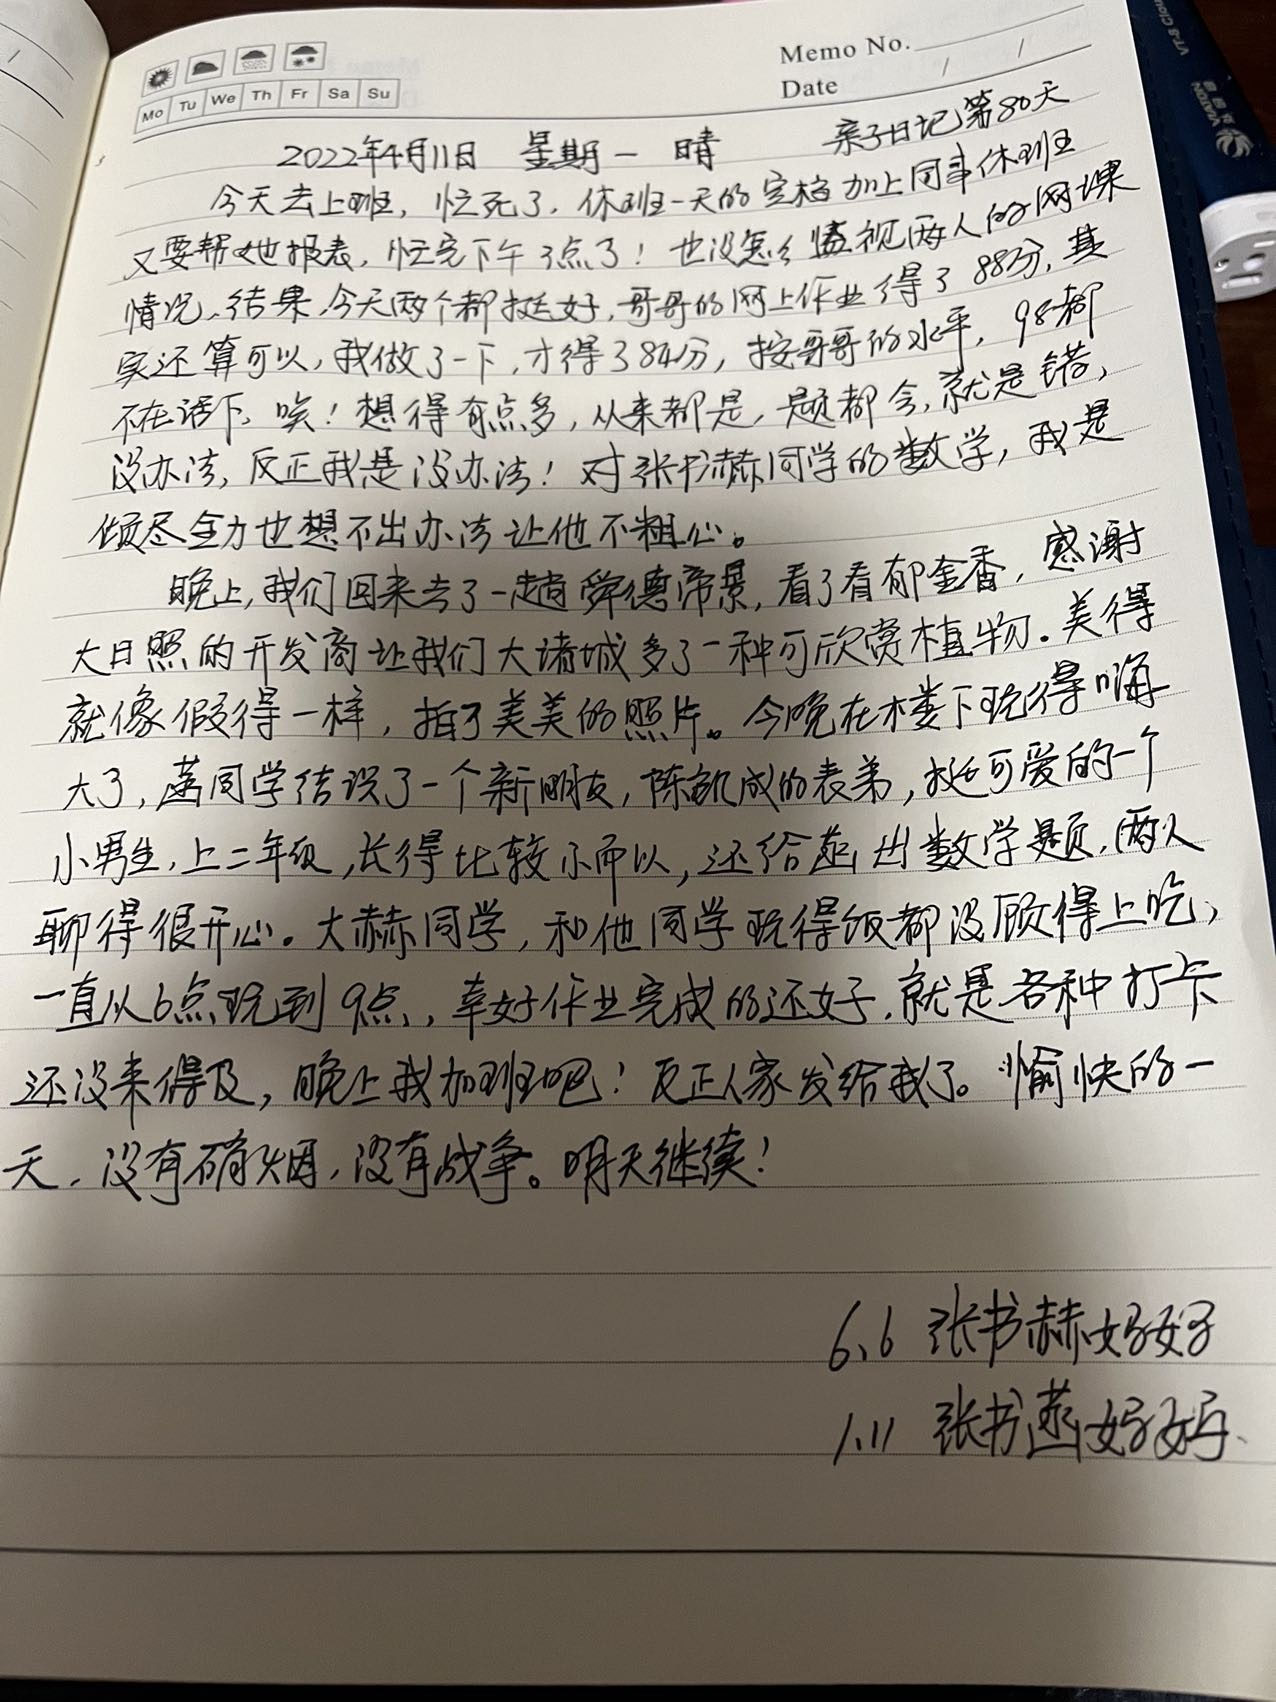 Memo No.
Mo Tu We Th Fr Sa Su
Date / /
2022年4月11日 星期一 晴 亲子日记第80天
今天去上班，忙死了，休班一天的定档加上同事休班
又要帮她报表，忙完下午3点了！也没怎么监视两人的网课
情况、结果，今天两个都挺好，哥哥的网上作业得了88分，其
实还算可以，我做了一下，才得了84分，按哥哥的水平，98都
不在话下，唉！想得有点多，从来都是，题都会，就是错，
没办法，反正我是没办法！对张书赫同学的数学，我是
倾尽全力也想不出办法让他不粗心。
晚上，我们回来去了一趟舜德帝景，看了看郁金香，感谢
大日照的开发商让我们大诸城多了一种可欣赏植物。美得
就像假得一样，拍了美美的照片。今晚在楼下玩得嗨
大了，菡同学结识了一个新朋友，陈凯成的表弟，挺可爱的一个
小男生，上二年级，长得比较小而以，还给菡出数学题，两人
聊得很开心。大赫同学，和他同学玩得饭都没顾得上吃，
一直从6点玩到9点，幸好作业完成的还好，就是各种打卡
还没来得及，晚上我加班吧！反正人家发给我了。愉快的一
天，没有硝烟，没有战争。明天继续！
6.6 张书赫妈妈
1.11 张书菡妈妈
VIATON
VT-S Clou